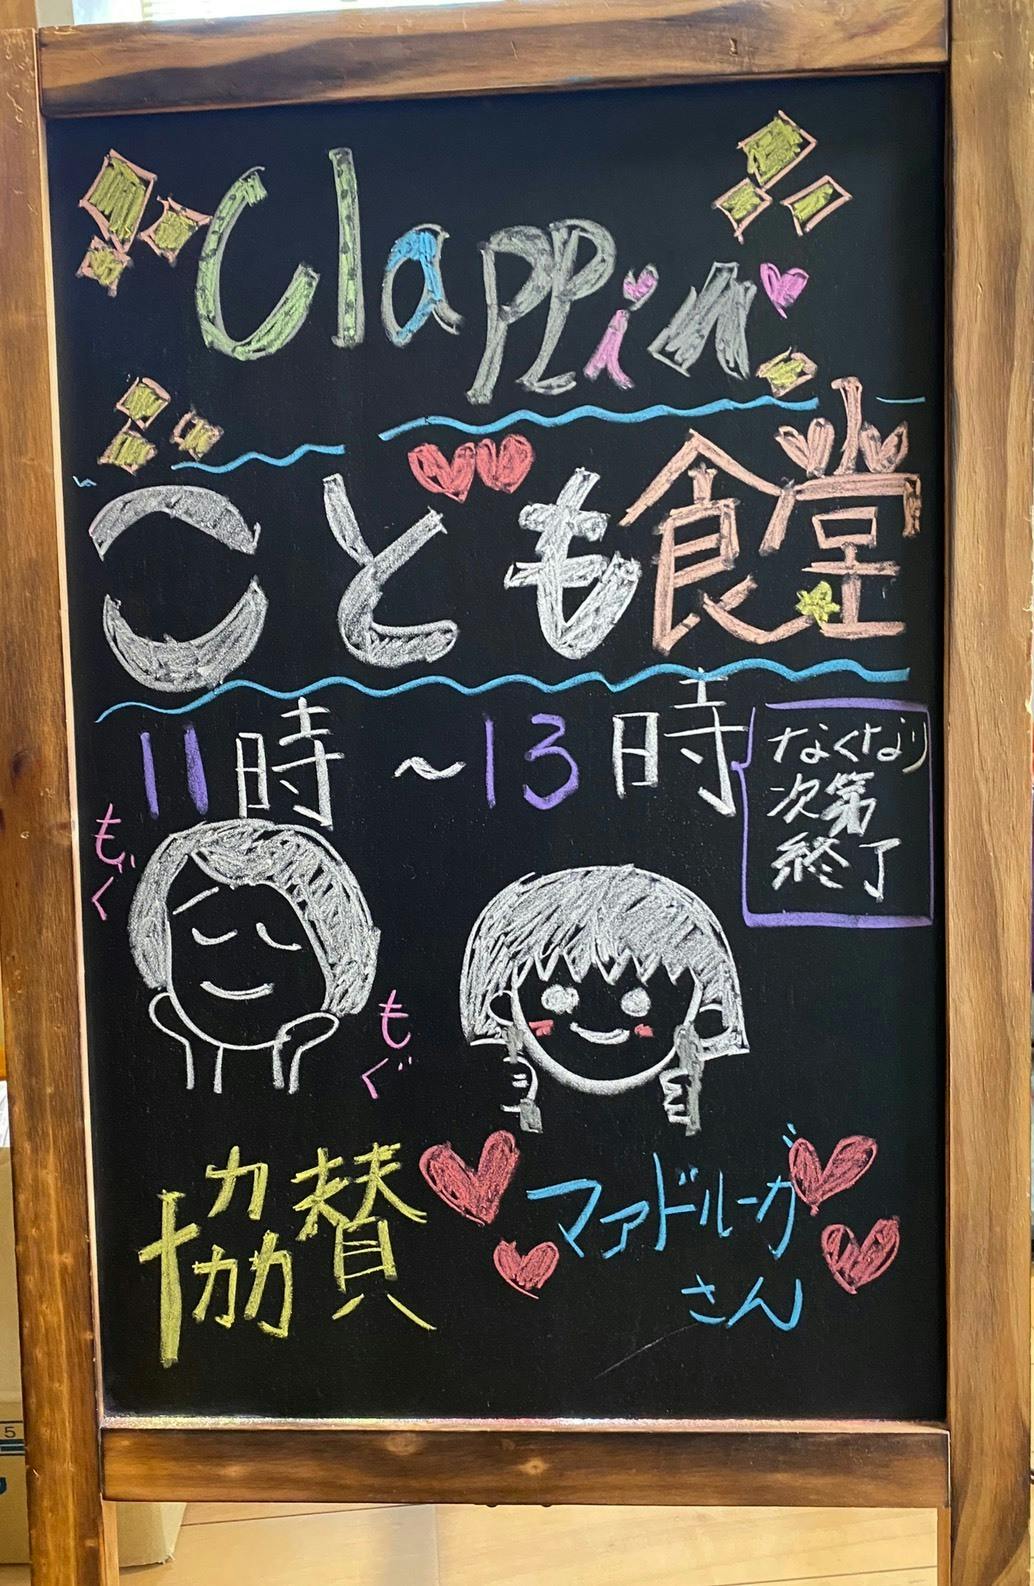 Clappin
こども食堂
11時～13時
なくなり
次第
終了
もぐ
もぐ
協賛
マァドルーガ
さん
5